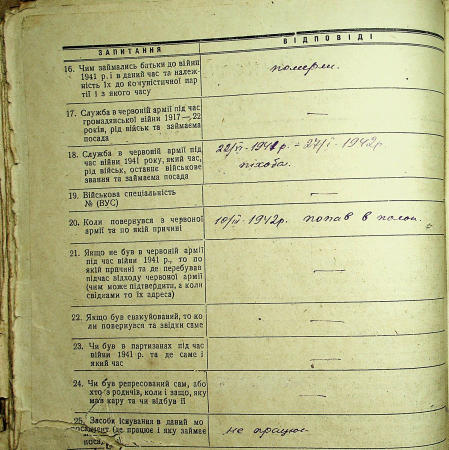 ЗАПИТАННЯ
ВІДПОВІДІ
16. Чим займались батьки до війни
1941 р. і в даний час та належ-
ність їх до комуністичної пар-
тії і з якого часу
померли.
17. Служба в червоній армії під час
громадянської війни 1917—22
років, рід військ та займаєма
посада
—
18. Служба в червоній армії під
час війни 1941 року, який час,
рід військ, останнє військове
звання та займаєма посада
22/VI-1941р. - 27/I-1942р
піхота.
19. Військова спеціальність
№ (ВУС)
—
20. Коли повернувся в червоної
армії та по якій причині
10/II-1942р. попав в полон.
21. Якщо не був в червоній армії
під час війни 1941 р., то по
якій причині та де перебував
підчас відходу червоної армії
(чим може підтвердити, а коли
свідками то їх адреса)
—
22. Якщо був евакуйований, то ко
ли повернувся та звідки саме
—
23. Чи був в партизанах під час
війни 1941 р. та де саме і
який час
—
24. Чи був репресований сам, або
хто з родичів, коли і защо, яку
мав кару та чи відбув її
—
25. Засоби існування в даний мо
мент (де працює і яку займає
поса
не працює